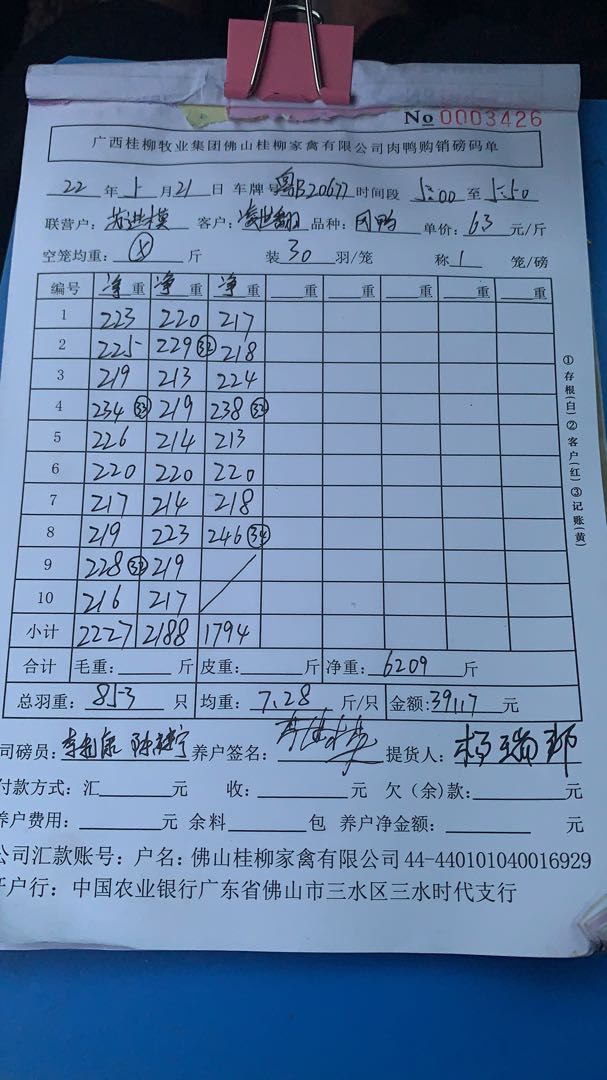 No 0003426
广西桂柳牧业集团佛山桂柳家禽有限公司肉鸭购销磅码单
22 年 5 月 21 日 车牌号 粤B20677 时间段 5:00 至 5:50
联营户: 客户: 品种: 肉鸭 单价: 6.3 元/斤
空笼均重: 斤 装 30 羽/笼 称 1 笼/磅
编号 净重 净重 净重 重 重 重 重 重
1 223 220 217
2 225 229 ㉜ 218
3 219 213 224
4 234 ㉝ 219 238 ㉝
5 226 214 213
6 220 220 220
7 217 214 218
8 219 223 246 ㉞
9 228 ㉜ 219
10 216 217
小计 2227 2188 1794
合计 毛重: 斤 皮重: 斤 净重: 6209 斤
总羽重: 853 只 均重: 7.28 斤/只 金额: 39117 元
司磅员: 养户签名: 提货人:
付款方式: 汇 元 收: 元 欠(余)款: 元
养户费用: 元 余料 包 养户净金额: 元
公司汇款账号: 户名: 佛山桂柳家禽有限公司 44-440101040016929
开户行: 中国农业银行广东省佛山市三水区三水时代支行
①存根(白)②客户(红)③记账(黄)